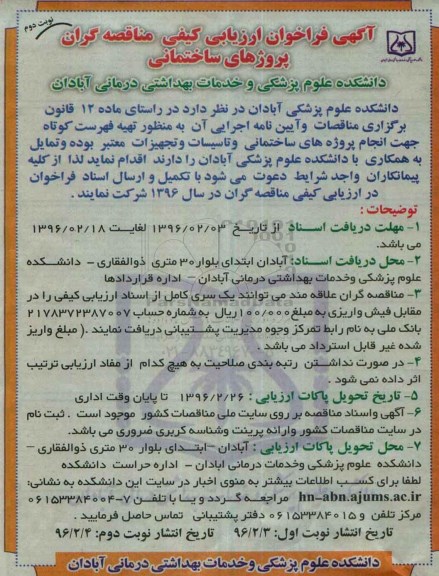 نوبت دوم
آگهی فراخوان ارزیابی کیفی مناقصه گران
پروژهای ساختمانی
دانشکده علوم پزشکی و خدمات بهداشتی درمانی آبادان
دانشکده علوم پزشکی آبادان در نظر دارد در راستای ماده ۱۲ قانون
برگزاری مناقصات وآیین نامه اجرایی آن به منظور تهیه فهرست کوتاه
جهت انجام پروژه های ساختمانی وتاسیسات وتجهیزات معتبر بوده وتمایل
به همکاری با دانشکده علوم پزشکی آبادان را دارند اقدام نماید لذا از کلیه
پیمانکاران واجد شرایط دعوت می شود با تکمیل و ارسال اسناد فراخوان
در ارزیابی کیفی مناقصه گران در سال ۱۳۹۶ شرکت نمایند .
توضیحات :
۱- مهلت دریافت اسناد از تاریخ ۱۳۹۶/۰۲/۰۳ لغایت ۱۳۹۶/۰۲/۱۸
می باشد.
۲- محل دریافت اسناد: آبادان ابتدای بلوار۳۰ متری ذوالفقاری - دانشکده
علوم پزشکی وخدمات بهداشتی درمانی آبادان - اداره قراردادها
۳- مناقصه گران علاقه مند می توانند یک سری کامل از اسناد ارزیابی کیفی را در
مقابل فیش واریزی به مبلغ۱۰۰/۰۰۰ریال به شماره حساب ۲۱۷۸۳۷۲۳۸۷۰۰۷
بانک ملی به نام رابط تمرکز وجوه مدیریت پشتیبانی دریافت نمایند .( مبلغ واریز
شده غیر قابل استرداد می باشد.
۴- در صورت نداشتن رتبه بندی صلاحیت به هیچ کدام از مفاد ارزیابی ترتیب
اثر داده نمی شود .
۵- تاریخ تحویل پاکات ارزیابی : ۱۳۹۶/۲/۲۶ تا پایان وقت اداری
۶- آگهی واسناد مناقصه بر روی سایت ملی مناقصات کشور موجود است . ثبت نام
در سایت مناقصات کشور وارائه پرینت وشناسه کاربری ضروری می باشد.
۷- محل تحویل پاکات ارزیابی : آبادان -ابتدای بلوار ۳۰ متری ذوالفقاری -
دانشکده علوم پزشکی وخدمات درمانی ابادان - اداره حراست دانشکده
لطفا برای کسب اطلاعات بیشتر به منوی اخبار در سایت این دانشکده به نشانی:
hn-abn.ajums.ac.ir مراجعه گردد و یا با تلفن ۷-۰۶۱۵۳۳۸۴۰۰۴
مرکز تلفن و ۰۶۱۵۳۳۸۴۰۱۵ دفتر پشتیبانی تماس حاصل فرمایید .
تاریخ انتشار نوبت اول: ۹۶/۲/۳ تاریخ انتشار نوبت دوم: ۹۶/۲/۴
دانشکده علوم پزشکی وخدمات بهداشتی درمانی آبادان